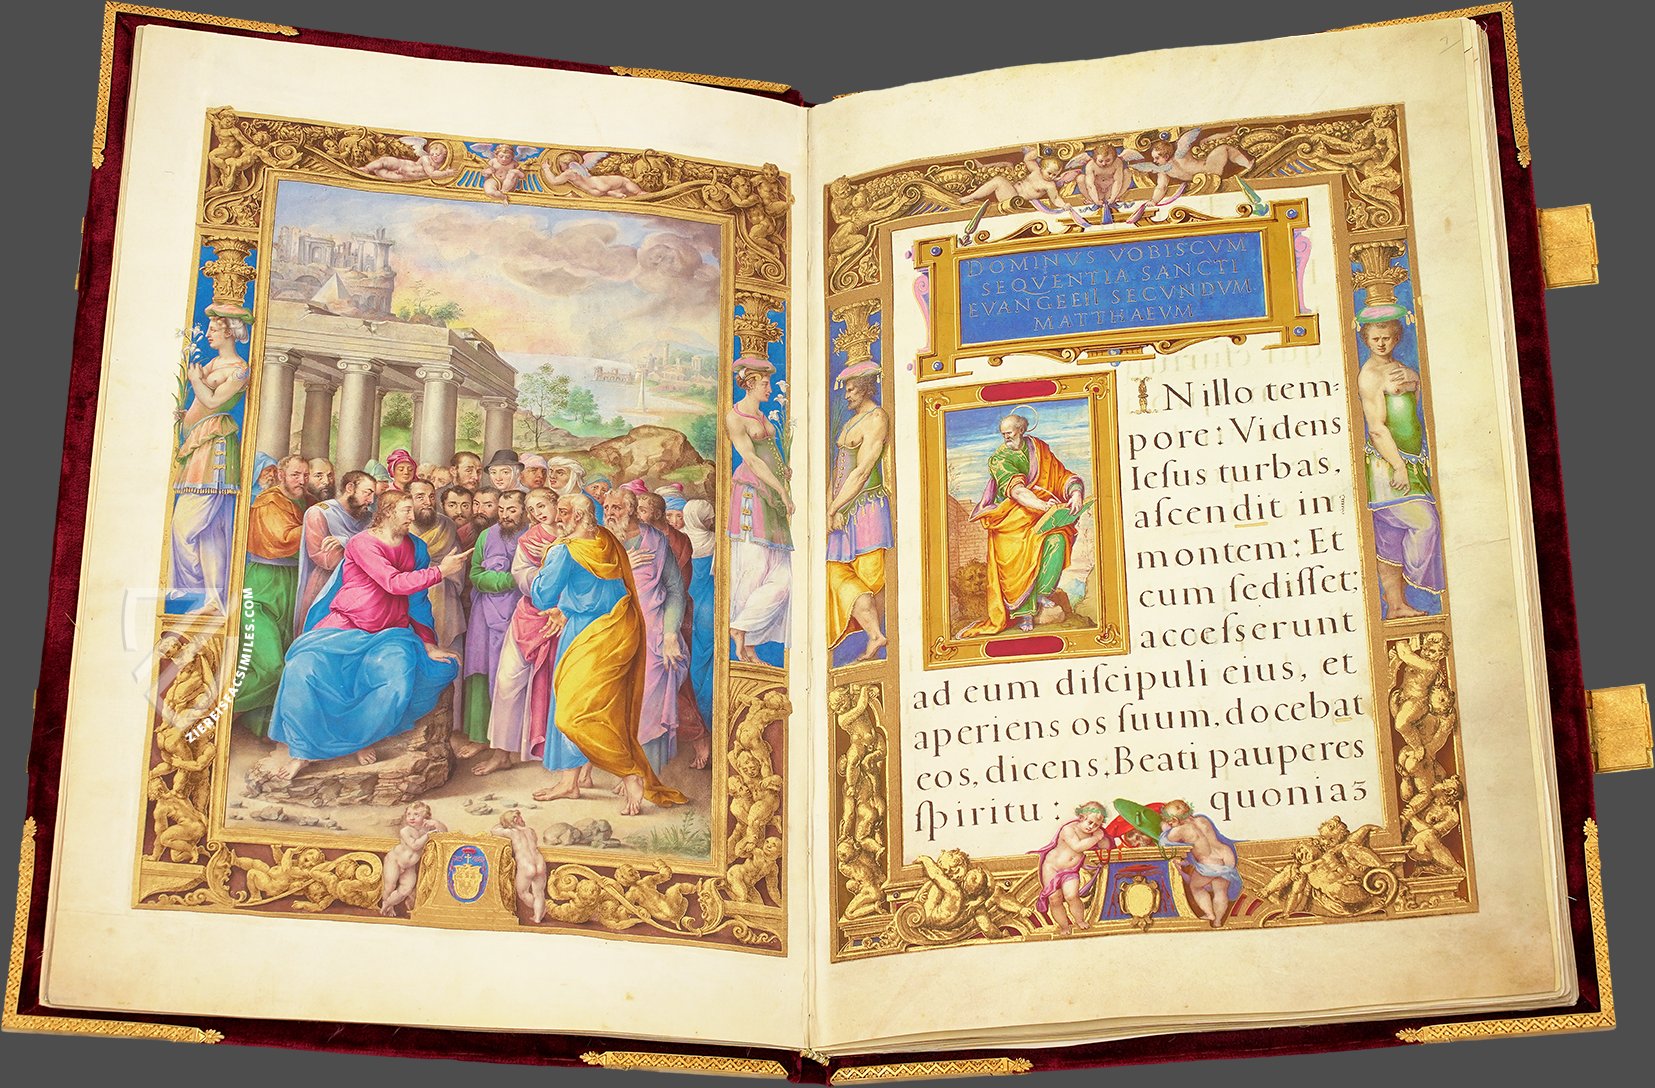 ZIEREISFACSIMILES.COM
DOMINVS VOBISCVM
SEQVENTIA SANCTI
EVANGEEII SECVNDVM
MATTHAEVM
IN illo tem-
pore: Videns
Iesus turbas,
ascendit in
montem: Et
cum sedisset;
accesserunt
ad eum discipuli eius, et
aperiens os suum, docebat
eos, dicens, Beati pauperes
spiritu: quoniaʒ